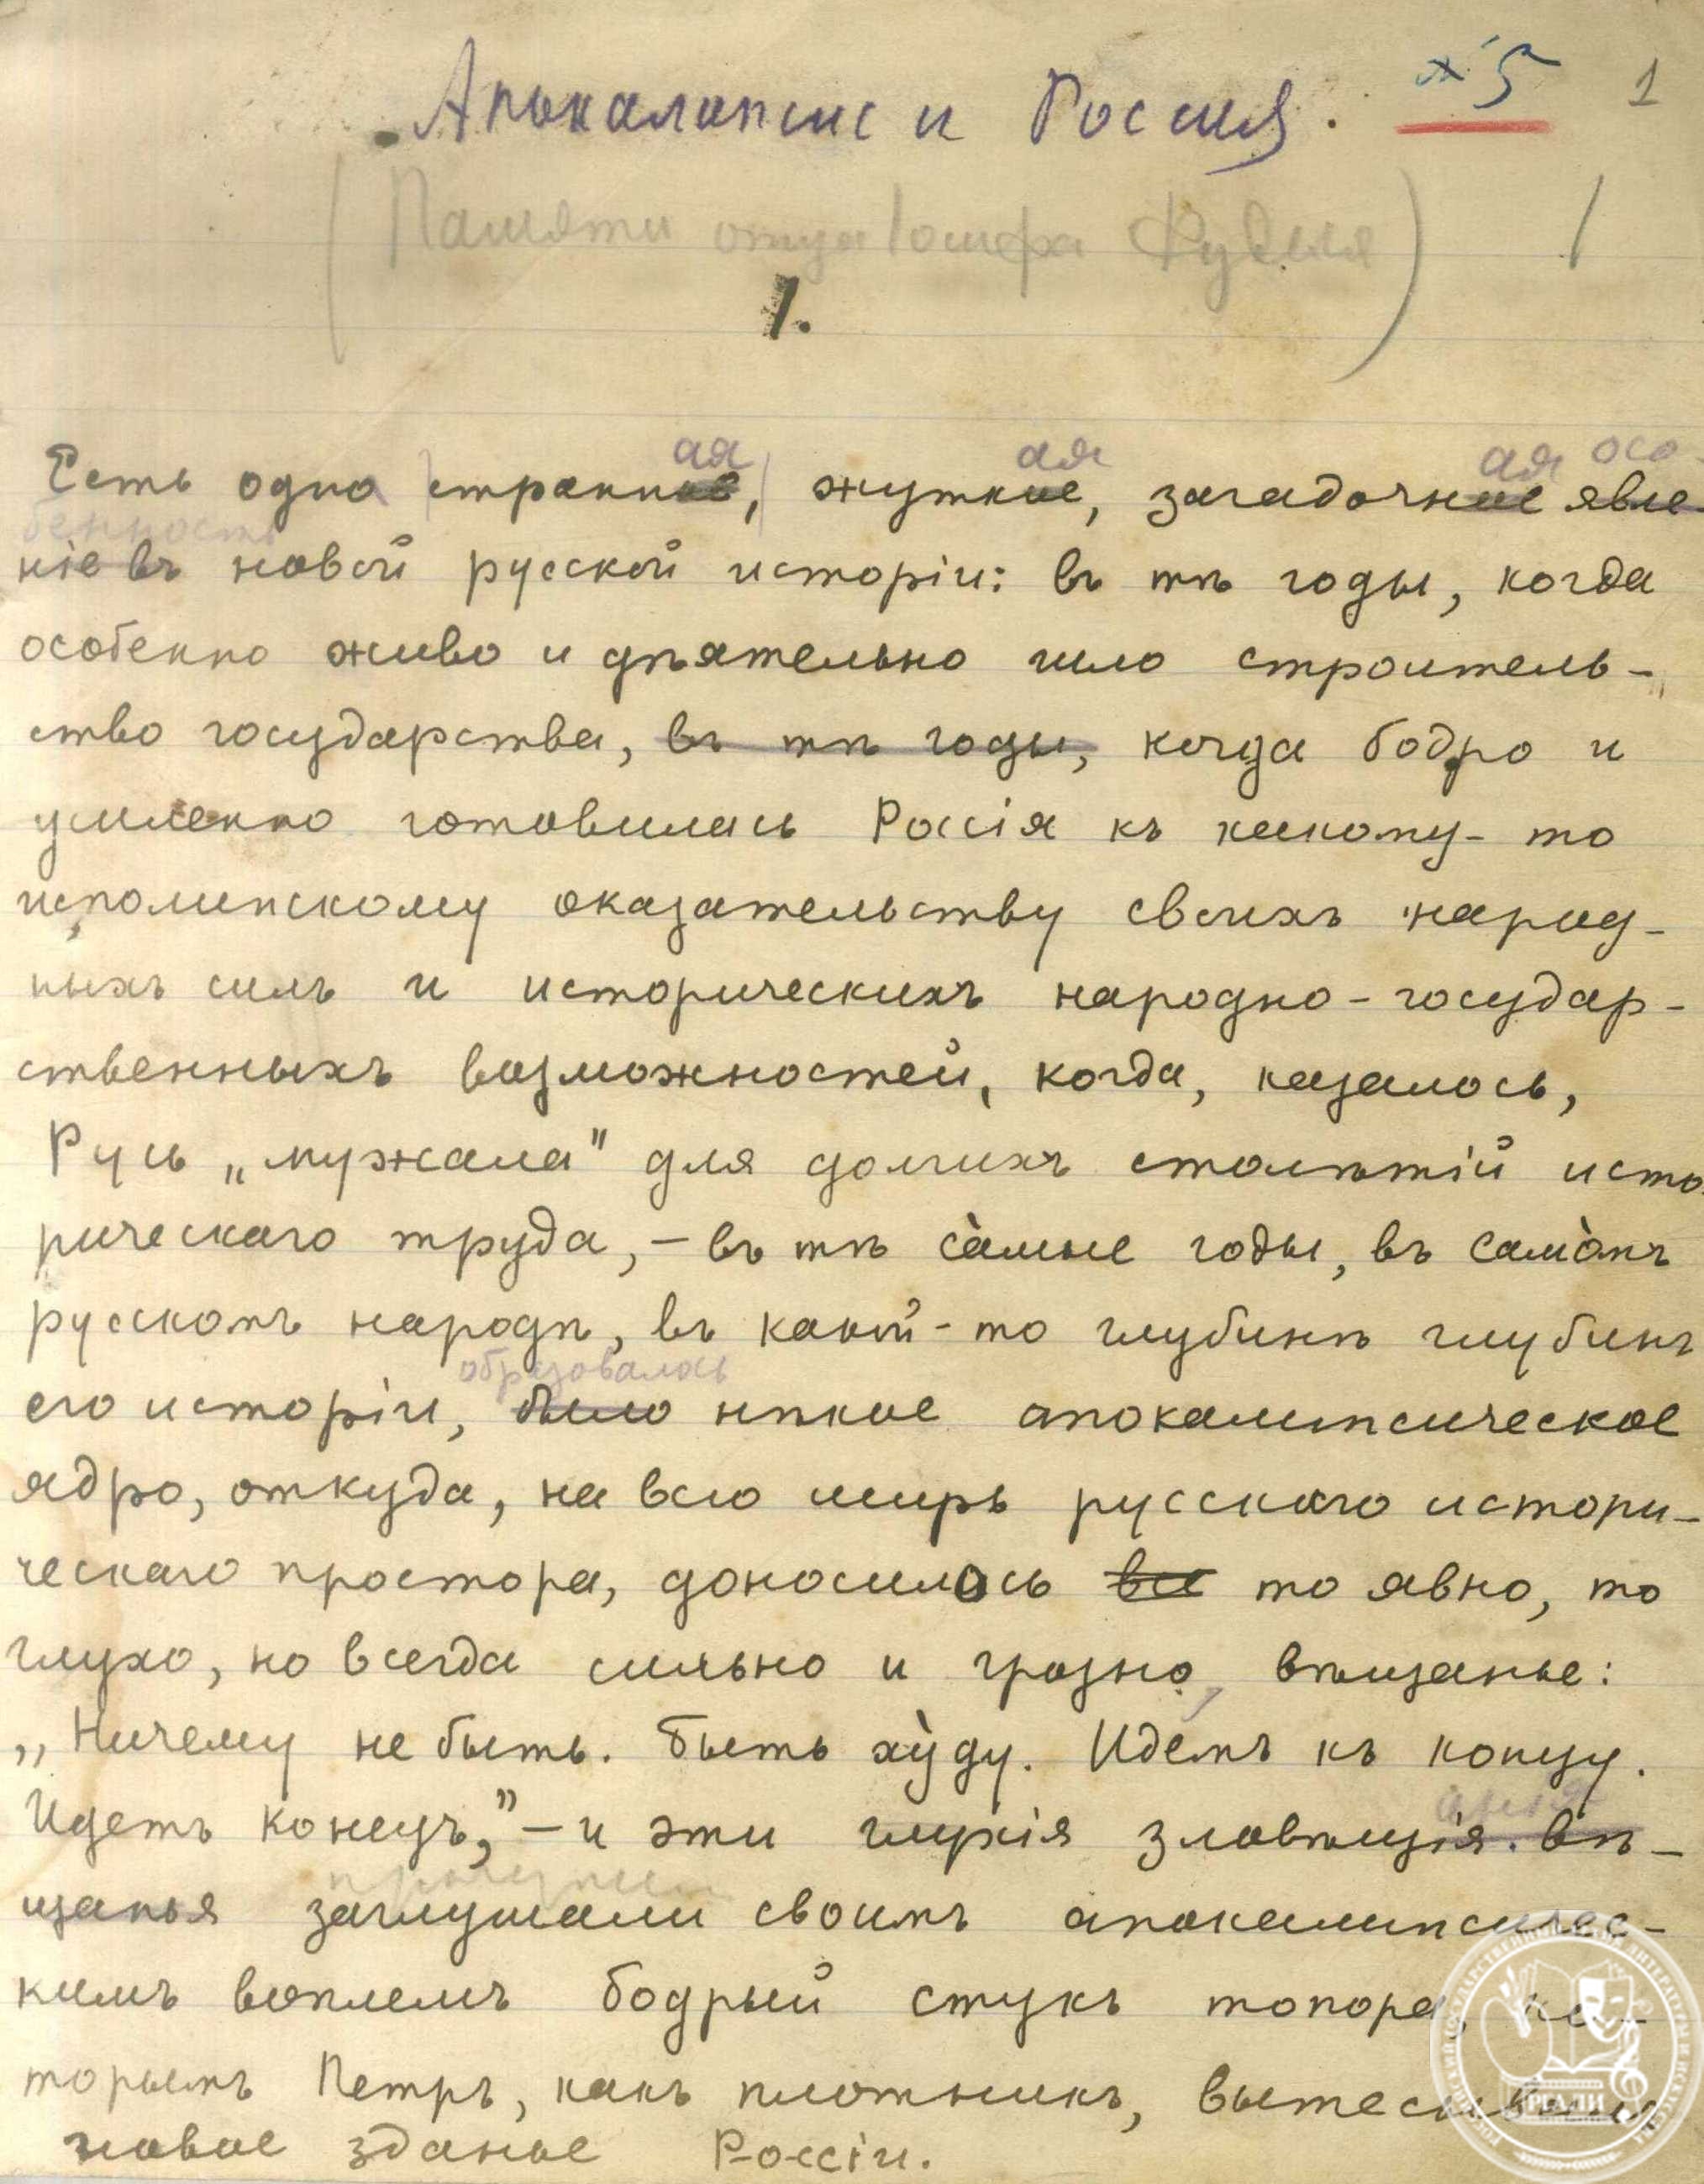 Апокалипсис и Россия. №5 1
(Памяти отца Іосифа Фуделя)
1.
ая ая ая осо-
Есть одна странное, жуткое, загадочное явле-
бенность
ніе въ новой русской исторіи: въ тѣ годы, когда
особенно живо и дѣятельно шло строитель-
ство государства, въ тѣ годы, когда бодро и
усиленно готовилась Россія къ какому-то
исполинскому оказательству своихъ народ-
ныхъ силъ и историческихъ народно-государ-
ственныхъ возможностей, когда, казалось,
Русь „мужала" для долгихъ столѣтій исто-
рическаго труда, – въ тѣ са̀мые годы, въ само̀мъ
русскомъ народѣ, въ какой-то глубинѣ глубинъ
образовалось
его исторіи, было нѣкое апокалипсическое
ядро, откуда, на всю ширь русскаго истори-
ческаго простора, доносилось все то явно, то
глухо, но всегда сильно и грозно, вѣщанье:
„Ничему не быть. Быть ху̀ду. Идёмъ къ концу.
Идетъ конецъ," – и эти глухія зловѣщія вѣ-
щанья заглушали своимъ апокалипсичес-
кимъ воплемъ бодрый стукъ топора, ко-
торымъ Петръ, какъ плотникъ, вытесывалъ
новое зданье Россіи.
РГАЛИ